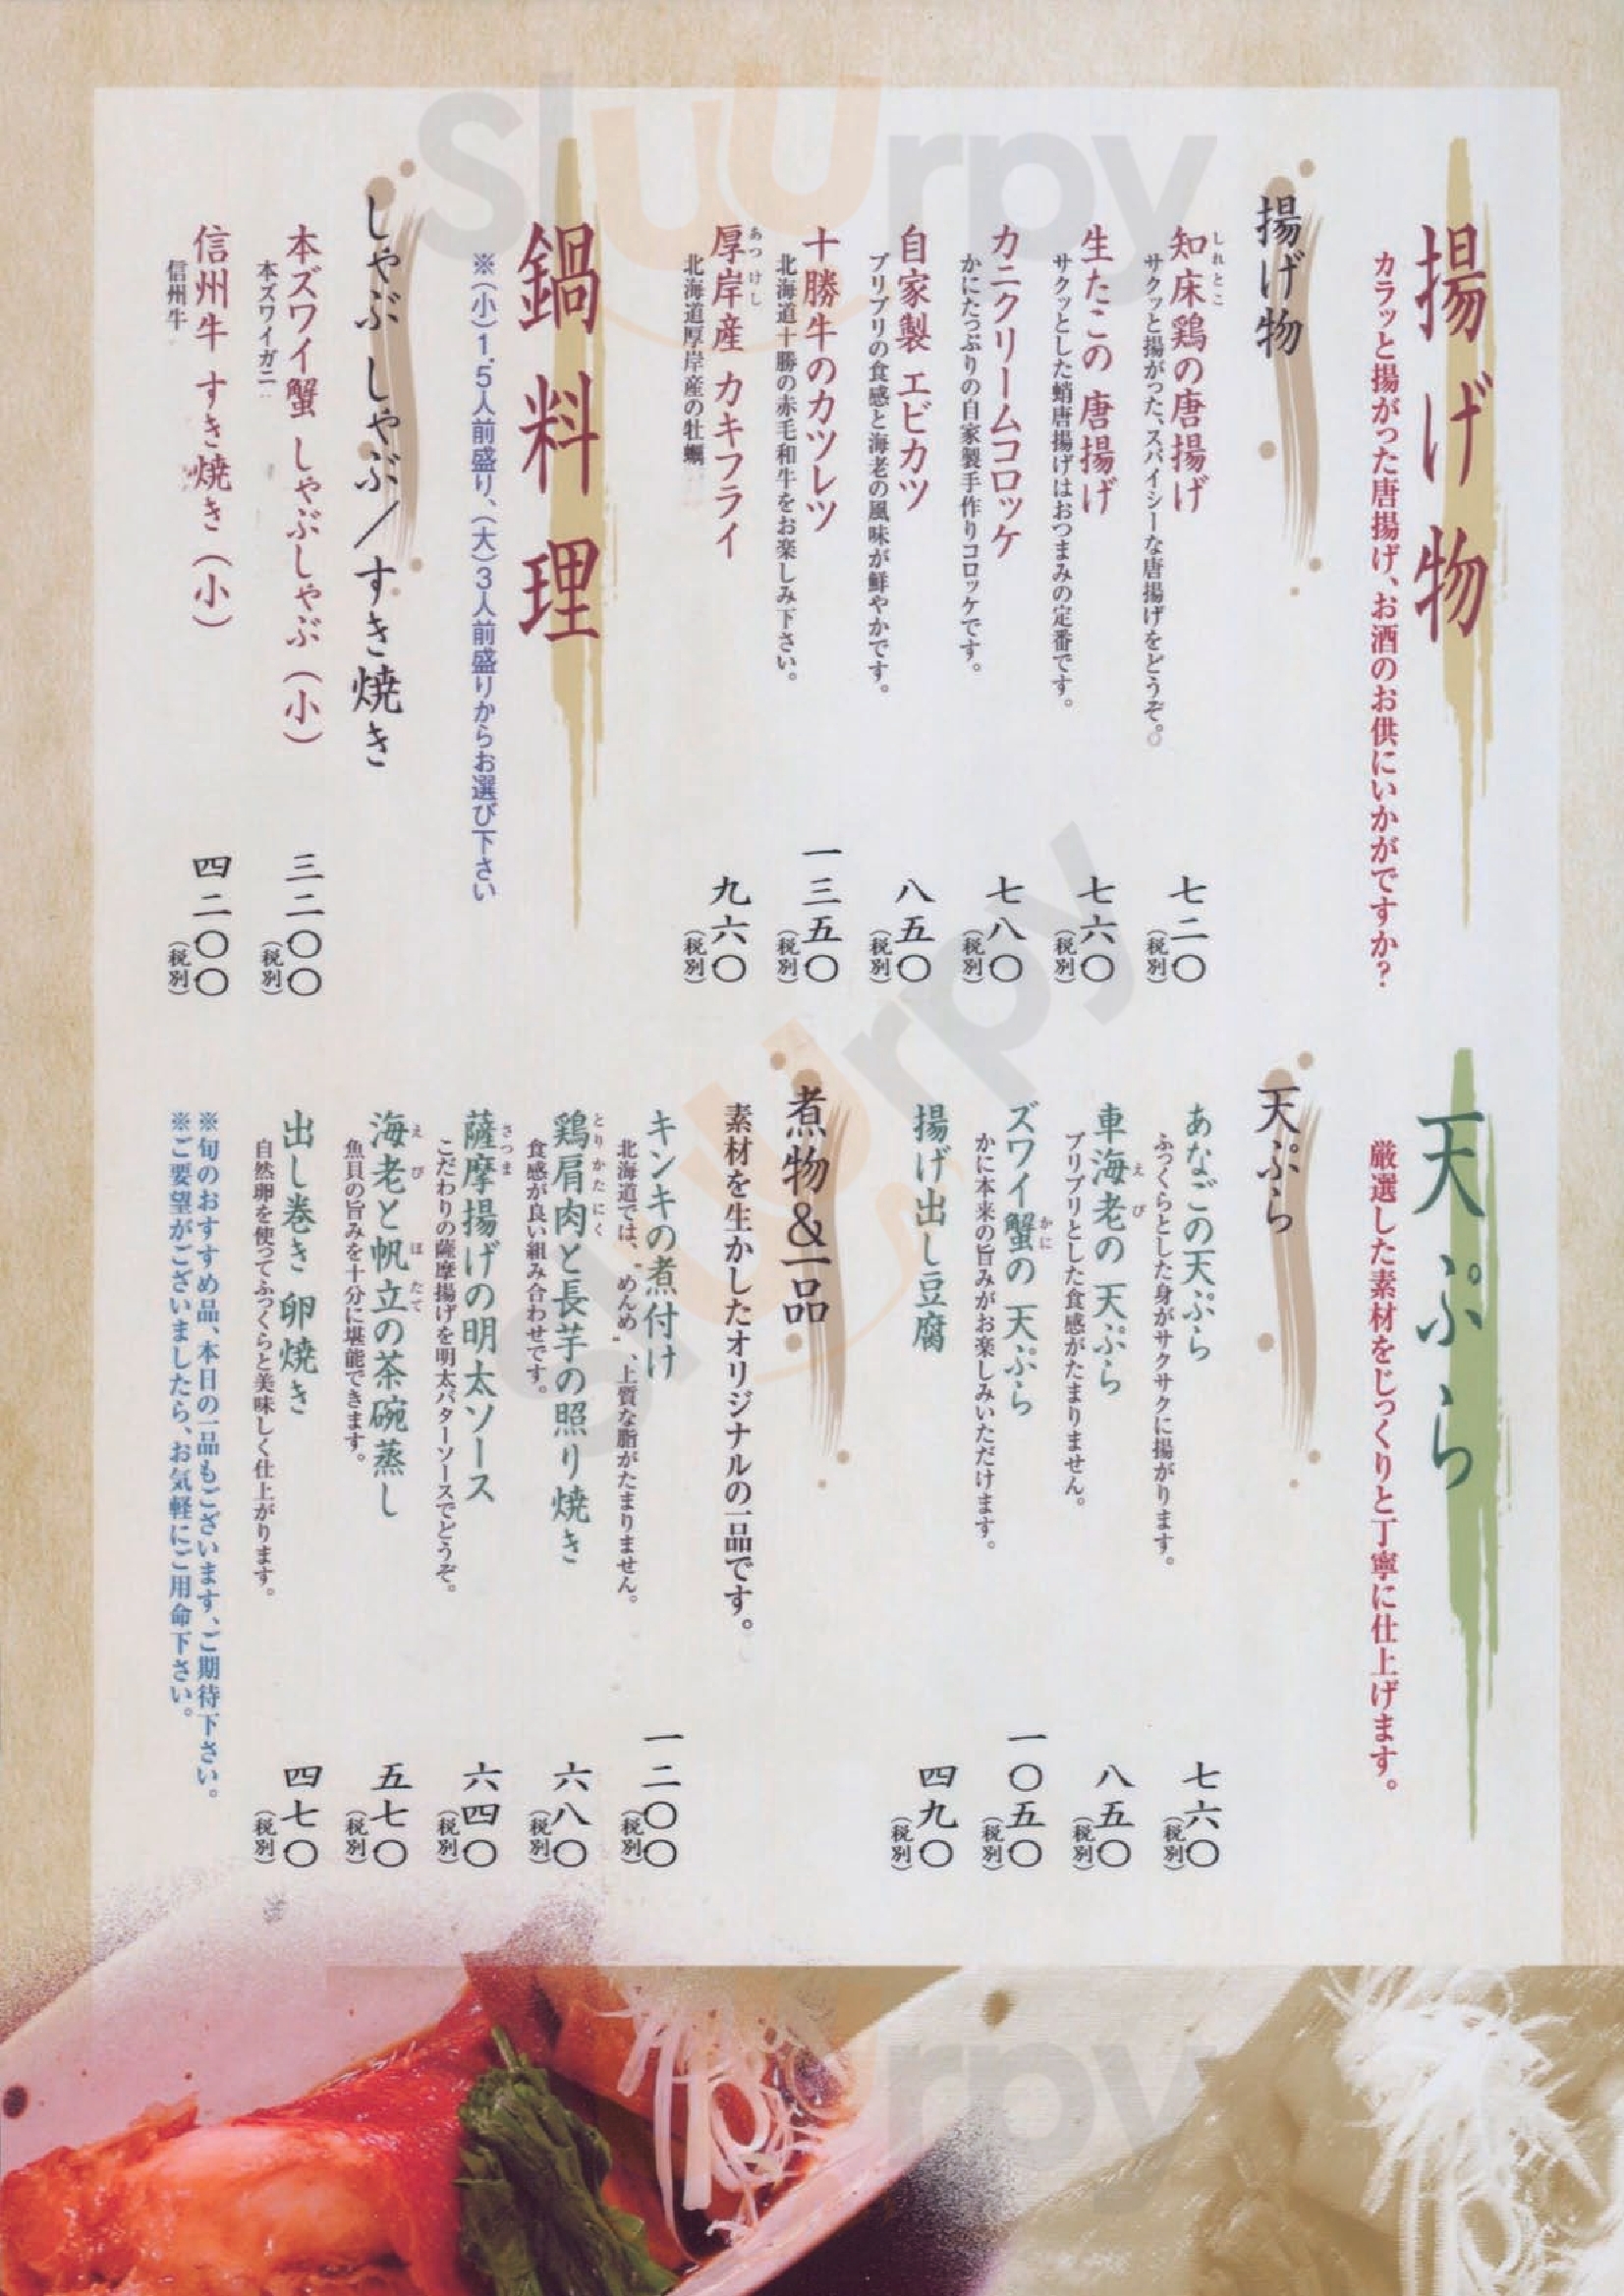 揚げ物
カラッと揚がった唐揚げ、お酒のお供にいかがですか?
揚げ物
知床鶏の唐揚げ
しれとこ
サクッと揚がった、スパイシーな唐揚げをどうぞ。
七二〇
(税別)
生たこの唐揚げ
サクッとした蛸唐揚げはおつまみの定番です。
七六〇
(税別)
カニクリームコロッケ
かにたっぷりの自家製手作りコロッケです。
七八〇
(税別)
自家製 エビカツ
プリプリの食感と海老の風味が鮮やかです。
八五〇
(税別)
十勝牛のカツレツ
北海道十勝の赤毛和牛をお楽しみ下さい。
一三五〇
(税別)
厚岸産 カキフライ
あつけし
北海道厚岸産の牡蠣
九六〇
(税別)
鍋料理
※(小)1.5人前盛り、(大)3人前盛りからお選び下さい
しゃぶしゃぶ/すき焼き
本ズワイ蟹 しゃぶしゃぶ(小)
本ズワイガニ
三二〇〇
(税別)
信州牛 すき焼き(小)
信州牛
四二〇〇
(税別)
天ぷら
厳選した素材をじっくりと丁寧に仕上げます。
天ぷら
あなごの天ぷら
ふっくらとした身がサクサクに揚がります。
七六〇
(税別)
車海老の天ぷら
えび
プリプリとした食感がたまりません。
八五〇
(税別)
ズワイ蟹の天ぷら
かに
かに本来の旨みがお楽しみいただけます。
一〇五〇
(税別)
揚げ出し豆腐
四九〇
(税別)
煮物&一品
素材を生かしたオリジナルの一品です。
キンキの煮付け
北海道では、〝めんめ〟、上質な脂がたまりません。
一二〇〇
(税別)
鶏肩肉と長芋の照り焼き
とりかたにく
食感が良い組み合わせです。
六八〇
(税別)
薩摩揚げの明太ソース
さつま
こだわりの薩摩揚げを明太バターソースでどうぞ。
六四〇
(税別)
海老と帆立の茶碗蒸し
えび ほたて
魚貝の旨みを十分に堪能できます。
五七〇
(税別)
出し巻き 卵焼き
自然卵を使ってふっくらと美味しく仕上がります。
四七〇
(税別)
※旬のおすすめ品、本日の一品もございます、ご期待下さい。
※ご要望がございましたら、お気軽にご用命下さい。
Sluurpy
Sluurpy
rpy